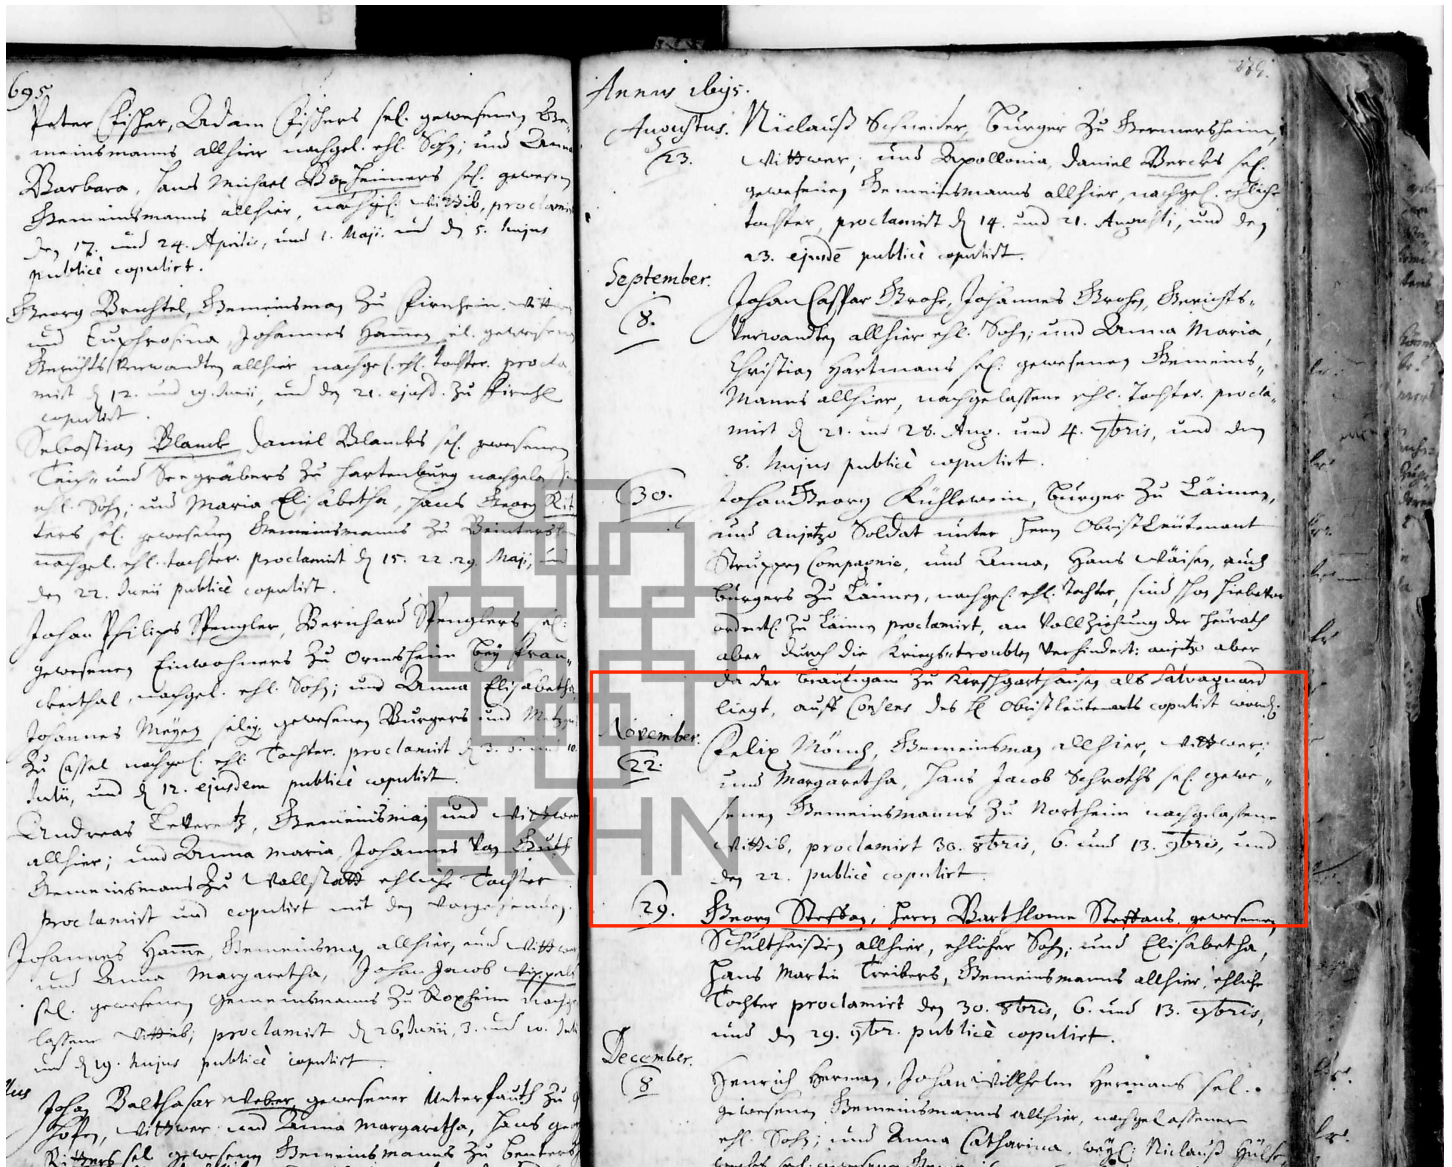 695
Peter Fischer, Adam Fischers sel. gewesenen Ge-
meinsmanns allhier nachgel. ehl. Sohn; und Anna
Barbara, Hans Michael sel. gewesen
Gemeinsmanns allhier, nachgel. Wittib, proclamirt
den 17. und 24. Aprilis, und 1. Maji. und d. 5. hujus
publicè copulirt.
Georg Gemeinsman zu Wittwer
und Euphrosina, Johannes Hammen gewesenen
Gerichts Verwandten allhier nachgel. ehl. tochter. procla
mirt d. 12. und 19. Junii, und den 21. ejusd. zu
copulirt.
Sebastian Blanck Daniel Blancks sel. gewesenen
Teich- und Seegräbers zu Hartenburg nachgelas
ehl. Sohn; und Maria Elisabetha, Hans Georg Rit
ters sel. gewesenen Gemeinsmanns zu
nachgel. ehl. tochter. proclamirt d. 15. 22. 29. Maji, und
den 22. Junii publicè copulirt.
Johan Philips Spengler, Bernhard Spenglers sel.
gewesenen Einwohners zu Ormsheim bey Fran-
ckenthal, nachgel. ehl. Sohn; und Anna Elisabetha
Johannes Meyen selig gewesenen Burgers und
zu Cassel nachgel. ehl. Tochter. proclamirt d. 3. und 10.
Julii, und d. 12. ejusdem publicè copulirt.
Andreas Gemeinsman und Wittwer
allhier; und Anna Maria, Johannes
Gemeinsmans zu Wallstatt ehliche Tochter
proclamirt und copulirt mit den vorgehenden.
Johannes Hamme, Gemeinsman allhier, und Wittwer
und Anna Margaretha, Johan Jacob
sel. gewesenen Gemeinsmanns zu Roxheim nachge
lassene Wittib, proclamirt d. 26. Junii, 3. und 10. Juli
und d. 19. hujus publicè copulirt.
Johan Balthasar Weber gewesener Unterfauth zu
Hofen, Wittwer und Anna Margaretha, Hans
Ritters sel. gewesenen Gemeinsmanns zu
279.
Anno 1695.
Augustus. Niclauß Schneider, Burger zu Germersheim,
23. Wittwer; und Apollonia, Daniel sel.
gewesenen Gemeinsmanns allhier, nachgel. ehliche
tochter, proclamirt d. 14. und 21. Augusti, und den
23. ejusdē publicè copulirt.
September.
8. Johan Caspar Grohe, Johannes Grohen, Gerichts-
Verwandten allhier ehl. Sohn; und Anna Maria,
Christian Hartmans sel. gewesenen Gemeins-
Manns allhier, nachgelassene ehl. Tochter. procla-
mirt d. 21. und 28. Aug. und 4. 7bris, und den
8. hujus publicè copulirt.
30. Johan Georg Kühlewein, Burger zu Läimen,
und anjetzo Soldat unter Herrn Obrist Leütenant
Struppen Compagnie, und Anna, Hans auch
Burgers zu Läimen, nachgel. ehl. Tochter, sind schon hiebevor
ordentl. zu Läimen proclamirt, an Vollziehung der Heürath
aber durch die Kriegs-troublen verhindert: anjetzo aber
da der Breütigam zu Kirschgarthausen als Salvaguard
liegt, auff Consens des H. Obristleütenants copulirt worden.
November.
22. Felix Mönch, Gemeinsman allhier, Wittwer;
und Margaretha, Hans Jacob Schroths sel. gewe-
senen Gemeinsmanns zu Northeim nachgelassene
Wittib, proclamirt 30. 8bris, 6. und 13. 9bris, und
den 22. publicè copulirt.
29. Georg Steffan, Herrn Barthlome Steffans, gewesenen
Schultheisen allhier, ehlicher Sohn; und Elisabetha,
Hans Martin Treibers, Gemeinsmanns allhier ehliche
Tochter proclamirt den 30. 8bris, 6. und 13. 9bris,
und den 29. 9br. publicè copulirt.
December.
8 Henrich Herman, Johan Willhelm Hermans sel.
gewesenen Gemeinsmanns allhier, nachgelassener
ehl. Sohn; und Anna Catharina, weyl. Niclauß
EKHN